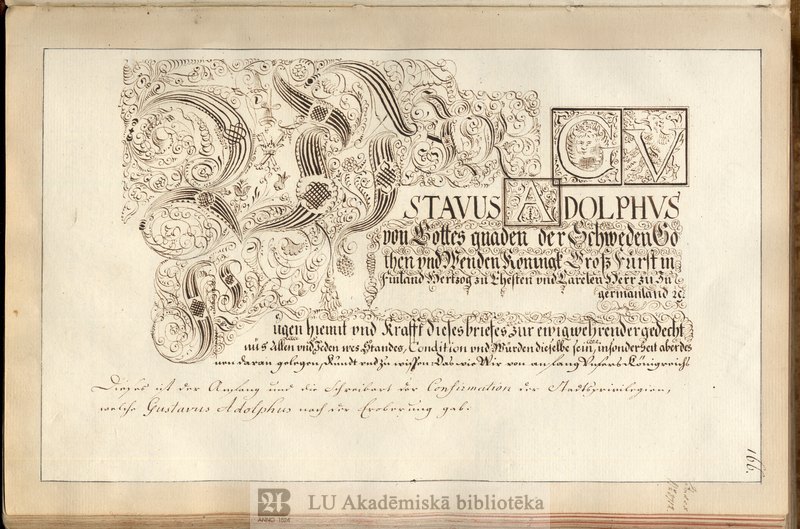 Wir GV
STAVUS ADOLPHVS
von Gottes gnaden der Schweden Go
then vnd Wenden Koningk Groß Fürst in
Finland Hertzog zu Ehesten vnd Carelen Herr zu In
germanland ꝛc.
ügen hiemit vnd Krafft dieses briefes, zur ewigwehrender gedecht
nüs Allen vnd Jeden wes Standes, Condition vnd Würden dieselbe sein, insonderheit aber des
nen daran gelegen, Kundt vnd zu wissen, Das wie Wir von anfang Vnsers Königreichs
Dieses ist der Anfang und die Schreibart der Confirmation der Stadtsprivilegien,
welche Gustavus Adolphus nach der Eroberung gab.
166.
LU Akadēmiskā bibliotēka
ANNO 1524